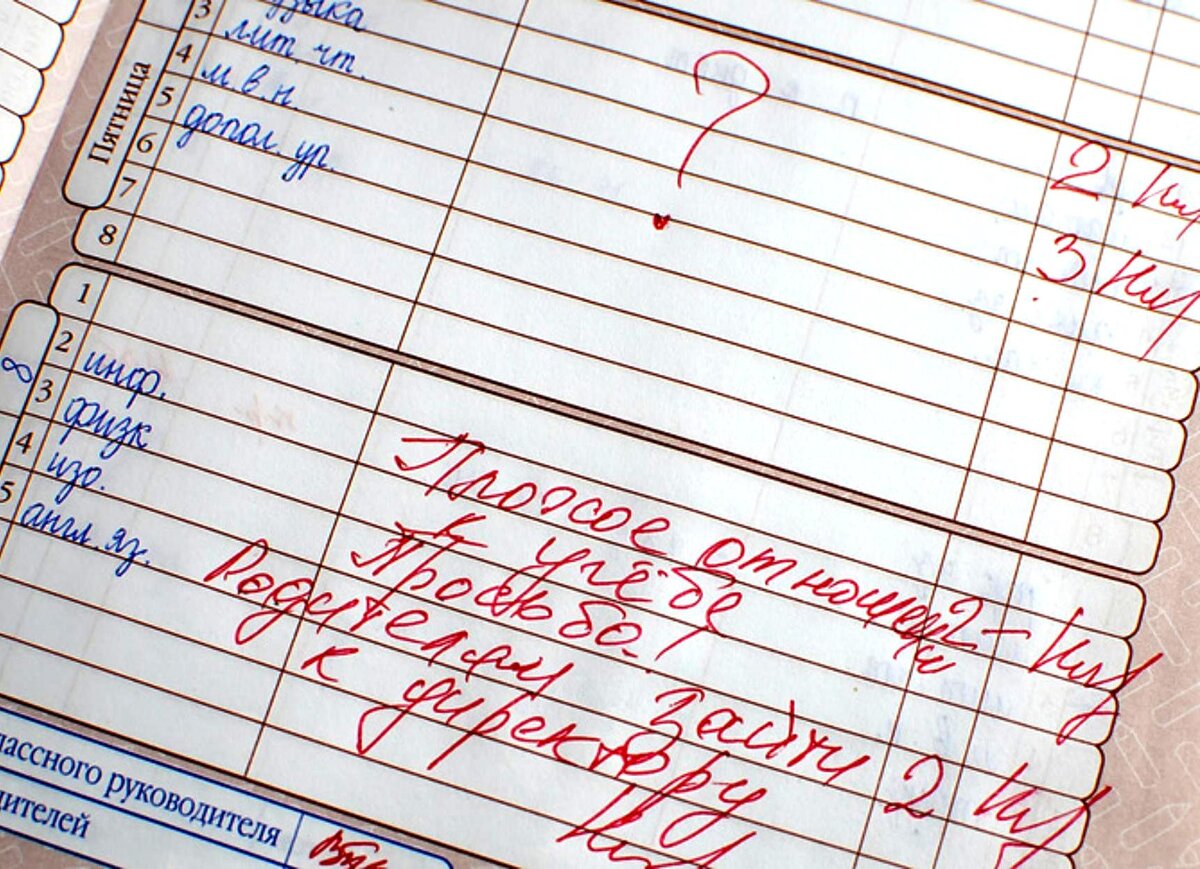 3
4 лит. чт.
5 м.в.н.
6 допол. ур.
7
8
Пятница
?
2
3
1
2 инф.
3 физк
4 изо.
5 англ. яз.
Плохое отношение
к учёбе
Просьба!
Родителям зайти
к директору
2 -
2
классного руководителя
дителей